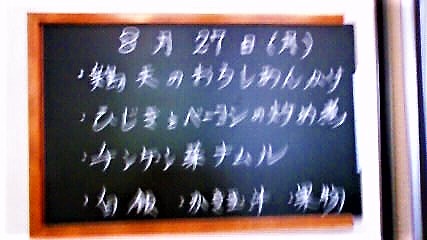 8月27日(月)
・鶏天のおろしあんかけ
・ひじきとベーコンの炒め煮
・チンゲン菜ナムル
・白飯 ・かき玉汁 ・果物